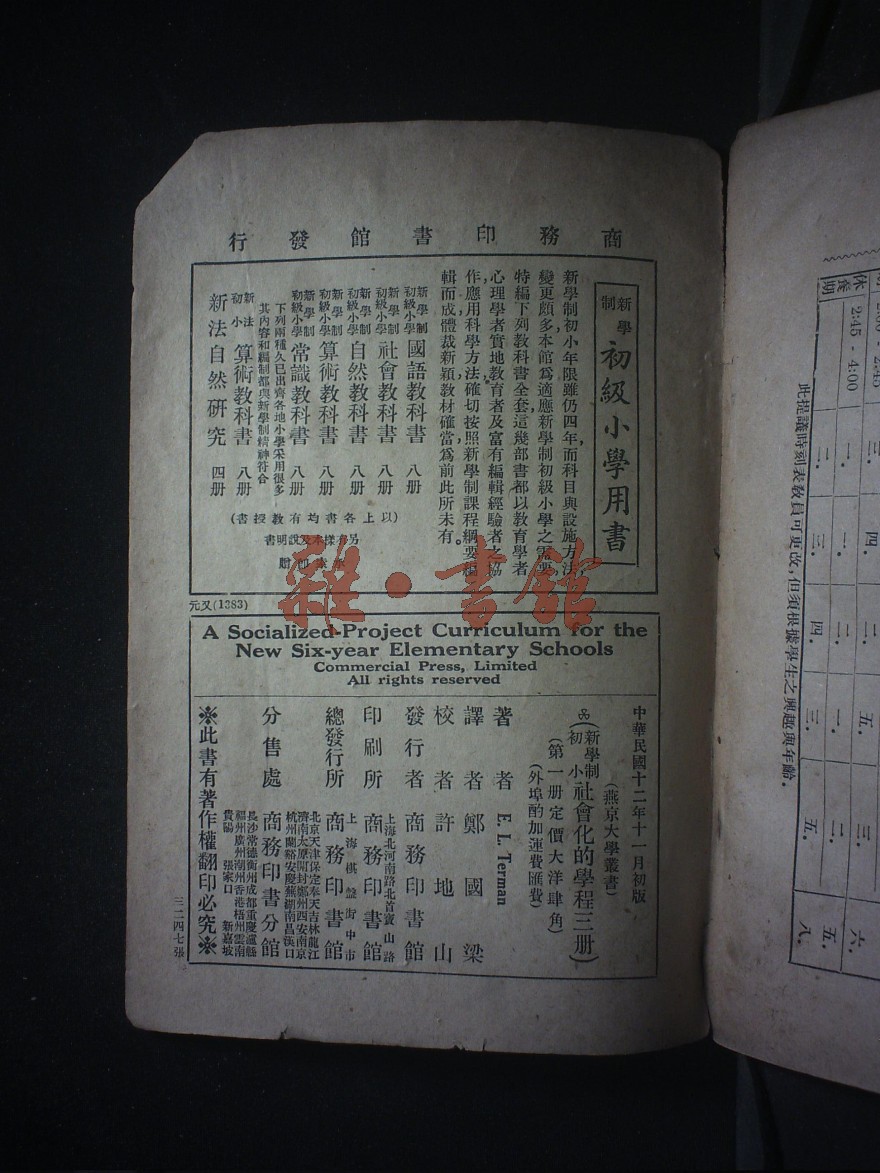 商務印書館發行
新學制
初級小學用書
新學制初小年限雖仍四年,而科目與設施方法
變更頗多,本館爲適應新學制初級小學之需要,
特編下列教科書全套,這幾部書都以教育學者
心理學者,實地教育者及富有編輯經驗者之協
作,應用科學方法,確切按照新學制課程綱要編
輯而成,體裁新穎,教材確當,爲前此所未有。
新學制初級小學 國語教科書 八册
新學制初級小學 社會教科書 八册
新學制初級小學 自然教科書 八册
新學制初級小學 算術教科書 八册
新學制初級小學 常識教科書 八册
下列兩種久已出齊各地小學采用很多
其內容和編制都與新學制精神符合
新法初小 算術教科書 八册
新法自然研究 四册
(以上各書均有教授書)
另有樣本及說明書
元又(1383)
雜·書館
A Socialized-Project Curriculum for the
New Six-year Elementary Schools
Commercial Press, Limited
All rights reserved
中華民國十二年十一月初版
(燕京大學叢書)
(新學制初小社會化的學程三册)
(第一册定價大洋肆角)
(外埠酌加運費匯費)
著者 E. L. Terman
譯者 鄭國梁
校者 許地山
發行者 商務印書館
印刷所 上海北河南路北首寶山路 商務印書館
總發行所 上海棋盤街中市 商務印書館
分售處 商務印書分館
北京天津保定奉天吉林龍江
濟南太原開封鄭州西安南京
杭州蘭谿安慶蕪湖南昌漢口
長沙常德衡州成都重慶瀘縣
福州廣州潮州香港梧州雲南
貴陽 張家口 新嘉坡
※此書有著作權翻印必究※
三二四七張
休息
2:45 - 4:00
此提議時刻表教員可更改,但須根據學生之興趣與年齡。